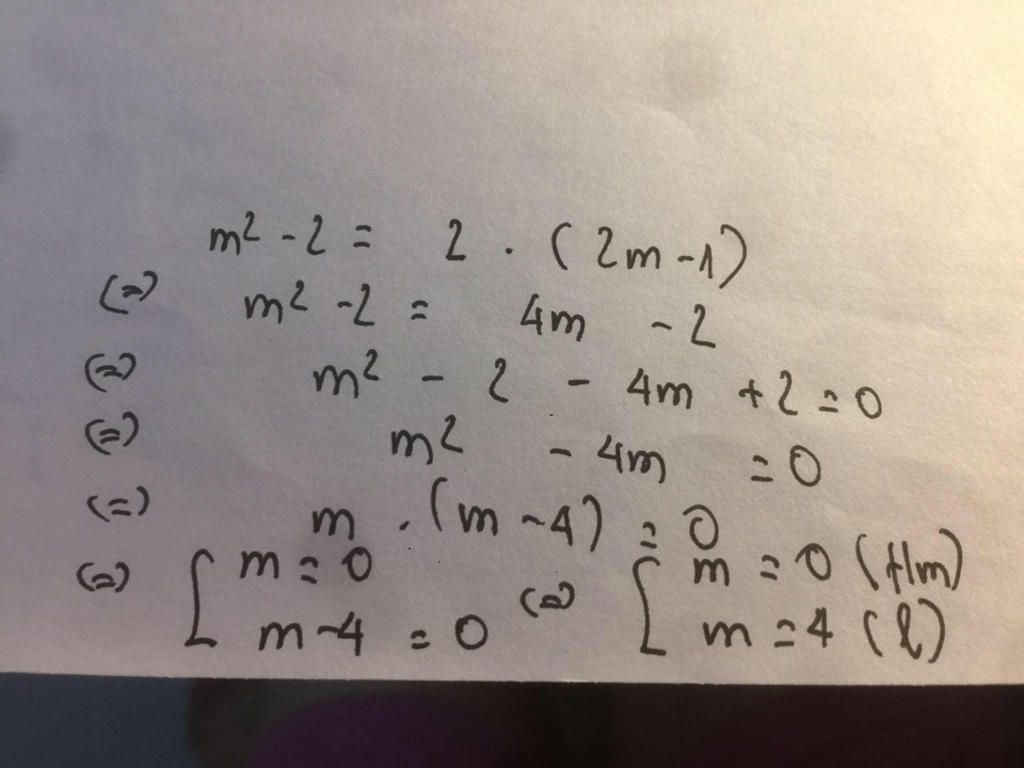 m² - 2 = 2 . (2m - 1)
(=) m² - 2 = 4m - 2
(=) m² - 2 - 4m + 2 = 0
(=) m² - 4m = 0
(=) m . (m - 4) = 0
(=) [ m = 0 (=) [ m = 0 (tm)
m - 4 = 0 m = 4 (l)